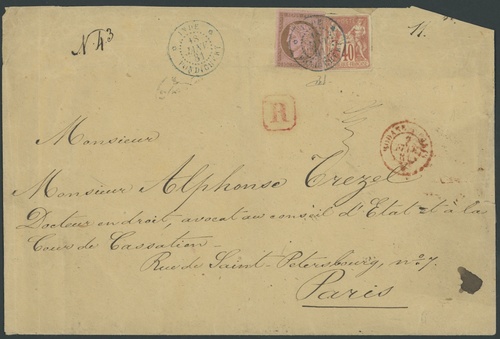 N. 43
INDE
PONDICHERY
40
R
Monsieur
Monsieur Alphonse Trezel
Docteur en droit, avocat au conseil d'Etat et à la
Cour de Cassation
Rue de Saint-Petersbourg, n° 7.
Paris